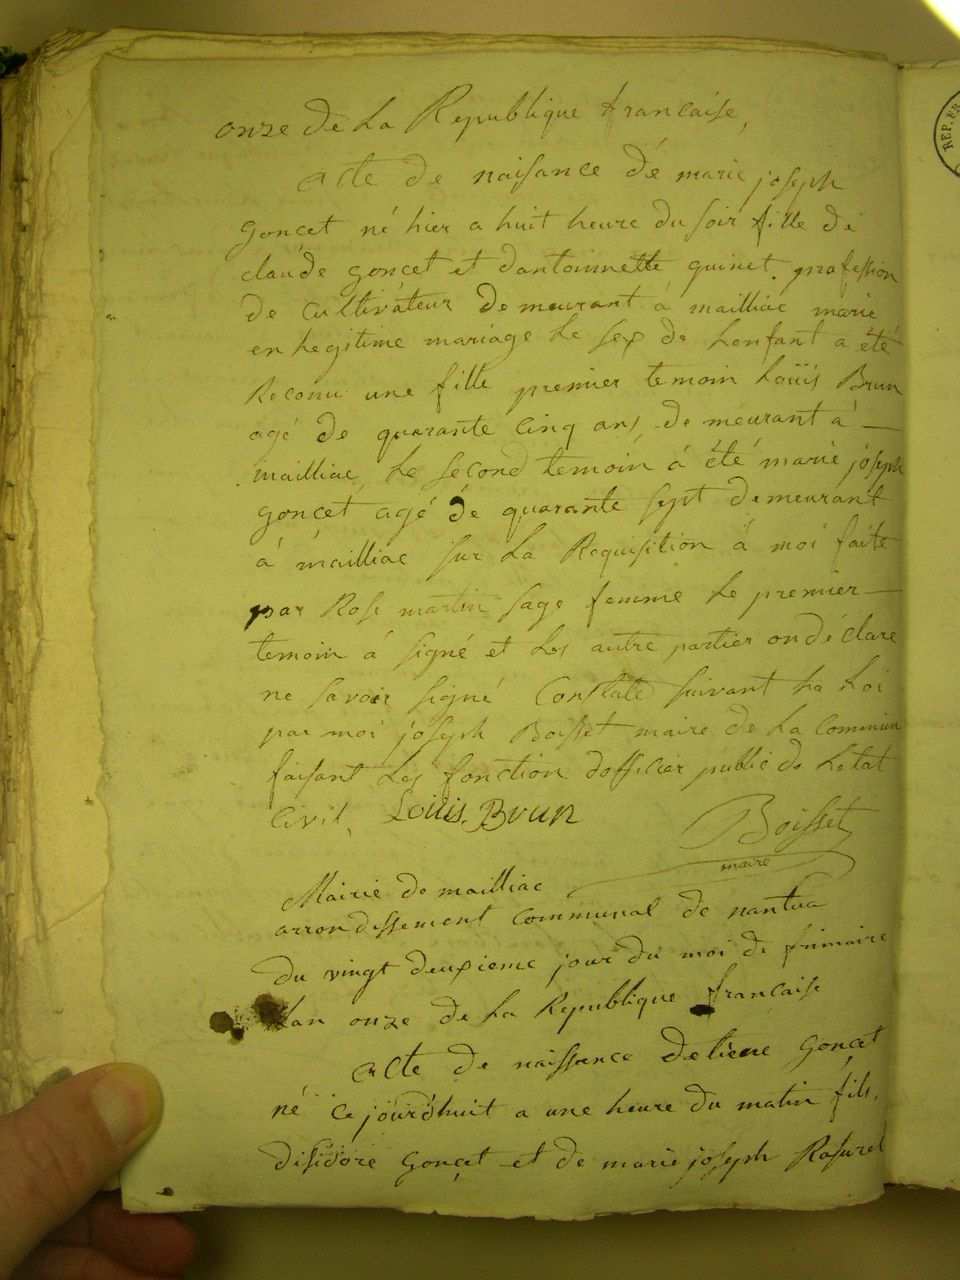 onze de la Republique francaise,
acte de naisance dé marie joseph
goncet né hier a huit heure du soir fille de
claude goncet et dantoinnette quinet. profession
de cultivateur demeurant à mailliac marie
en legitime mariage le sex de lenfant a été
Reconu une fille premier temoin Loüis Brun
agé de quarante cinq ans demeurant a
mailliac, le second temoin à été marie joseph
goncet agé de quarante sept demeurant
à mailliac sur la Requisition à moi faite
par Rose martin sage femme le premier
temoin à signé et les autre partier on déclare
ne savoir signé Constaté suivant la loi
par moi joseph Boisset maire de la commun
faisant les fonction dofficier public de letat
civil, Loüis. Brun Boisset
maire
Mairie de mailliac
arrondissement communal de nantua
du vingt deuxieme jour du moi de frimaire
lan onze de la Republique francaise
acte de naissance de goncet
né ce jourdhuit a une heure du matin fils,
disidore goncet et de marie joseph Rasurel
REP. FR